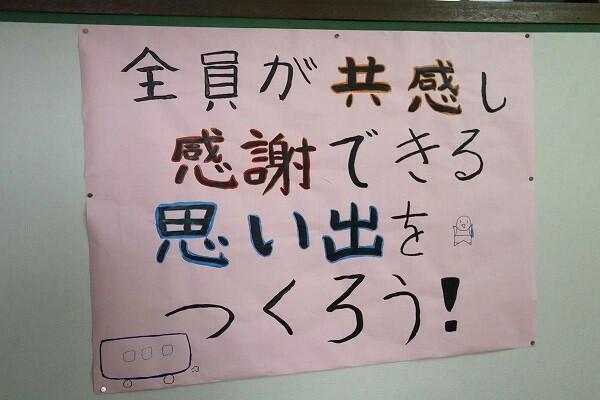 全員が共感し
感謝できる
思い出を
つくろう!